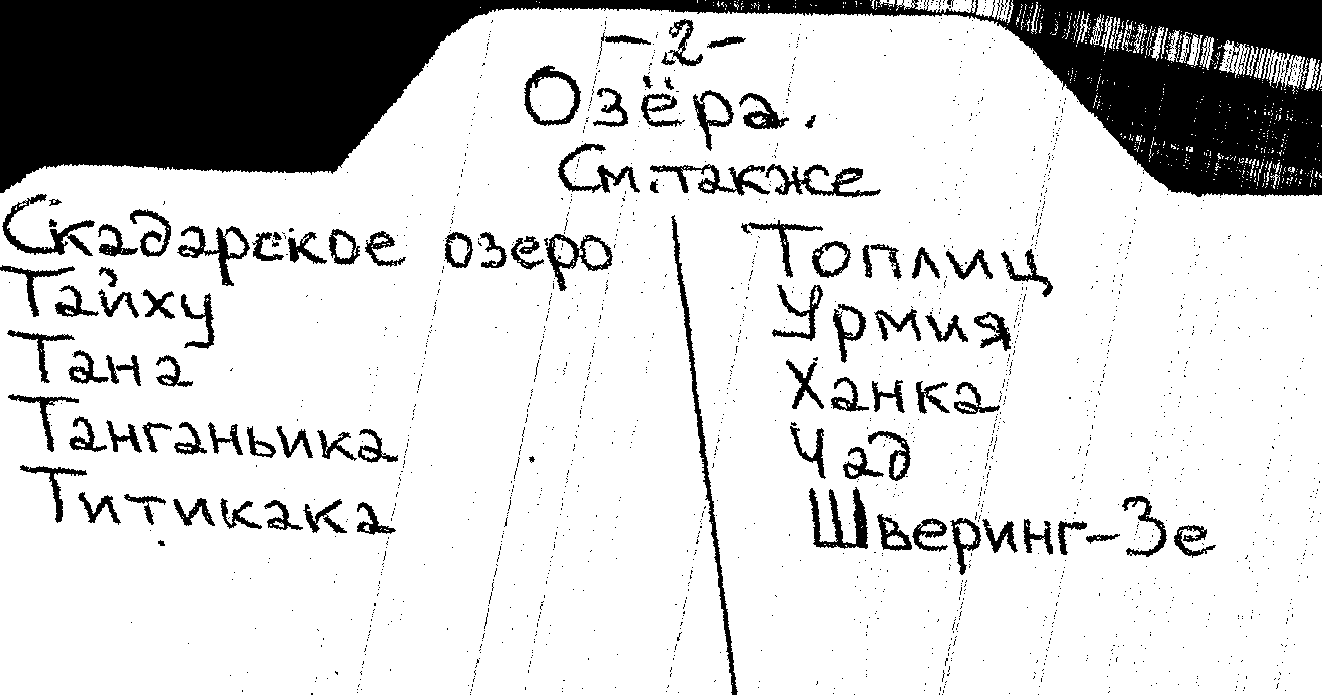 -2-
Озёра.
См. также
Скадарское озеро
Тайху
Тана
Танганьика
Титикака
Топлиц
Урмия
Ханка
Чад
Шверинг-Зе